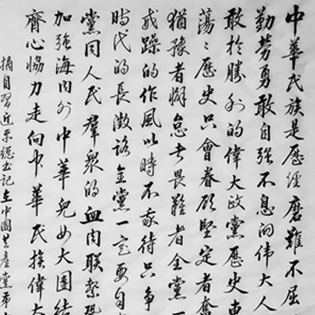 中華民族是歷經磨難不屈
勤勞勇敢自強不息的偉大人
敢於勝利的偉大政黨歷史車
蕩々歷史只會眷顧堅定者奮
猶豫者懈怠者畏難者全黨一
戒躁的作風以時不我待只爭
時代的長徵路全黨一定要自
黨同人民群衆的血肉聯繫鞏
加強海内外中華兒女大團結
齊心協力走向中華民族偉大
摘自習近平總書記在中國共產黨第